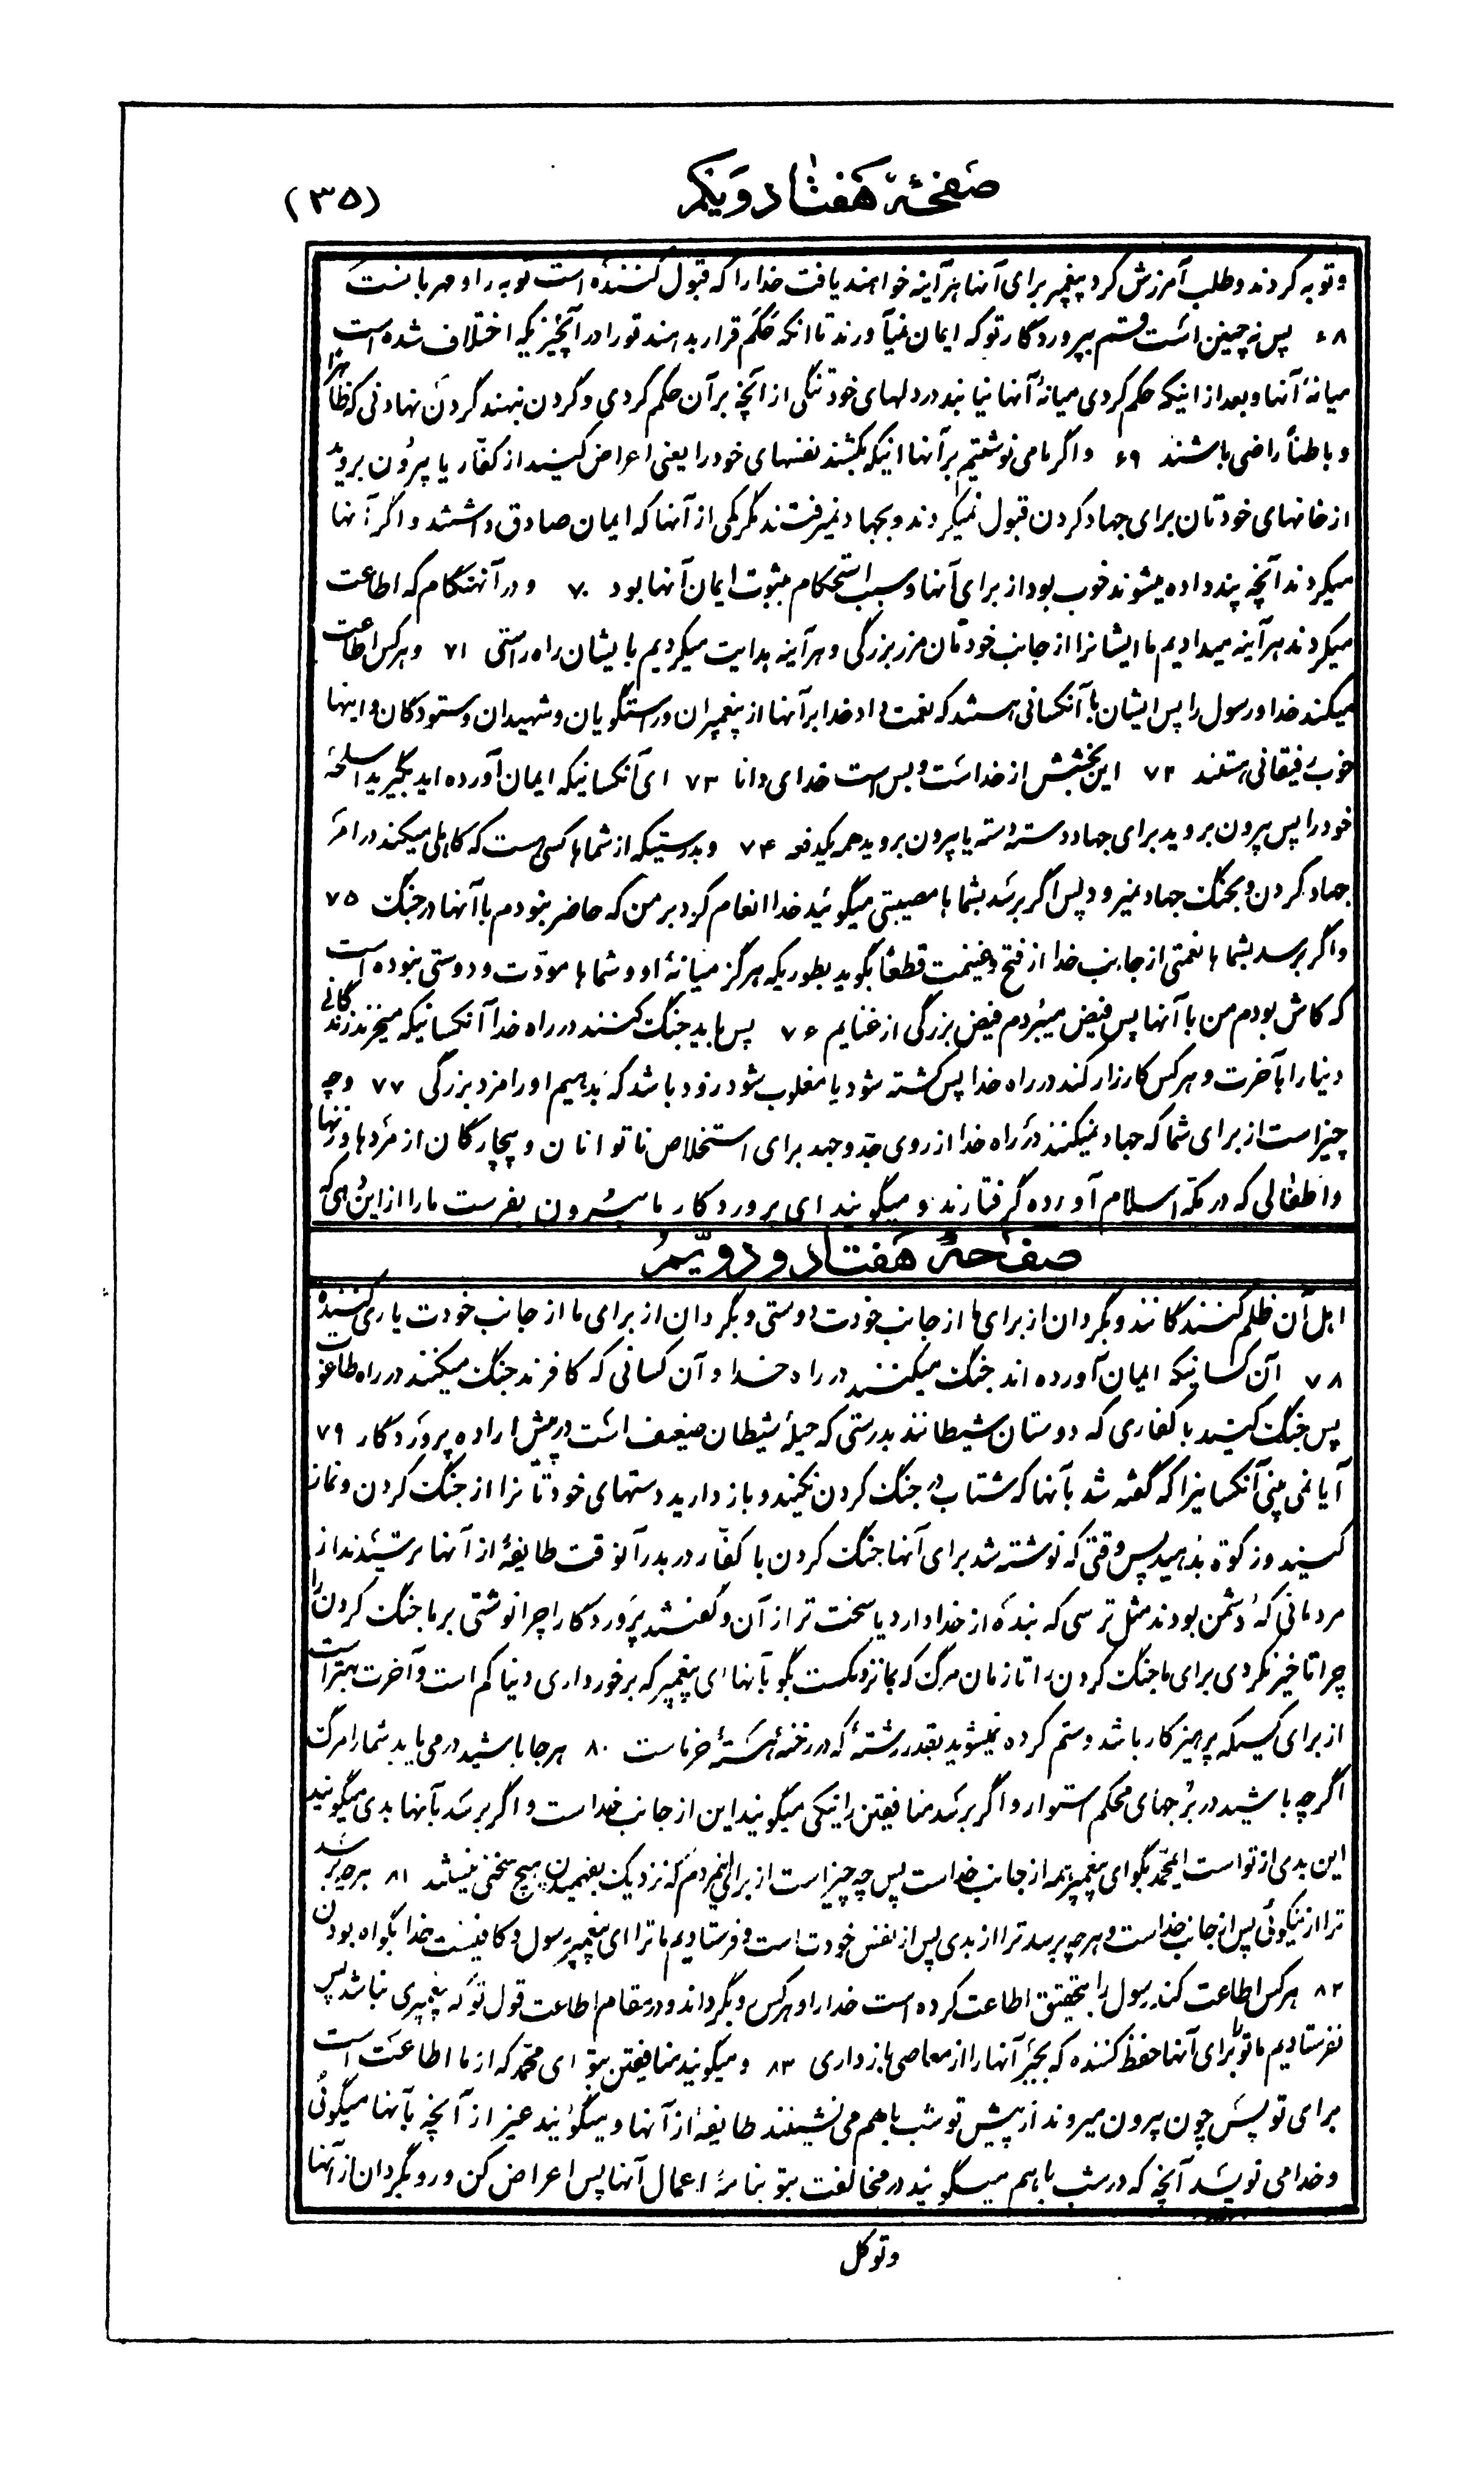 صفحهٔ هفتاد و یکم
(۳۵)
و توبه کردند و طلب آمرزش کرد پیغمبر برای آنها هر آینه خواهند یافت خدا را که قبول کننده است توبه را و مهربانست
۶۸ پس نه چنین است قسم بپروردگار تو که ایمان نمیآورند تا آنکه حَکَم قرار بدهند تو را در آنچیزیکه اختلاف شده است
میانهٔ آنها و بعد از اینکه حکم کردی میانهٔ آنها نیابند در دلهای خود تنگی از آنچه بر آن حکم کردی و گردن بنهند گردن نهادنی که ظاهراً
و باطناً راضی باشند ۶۹ و اگر ما می نوشتیم بر آنها اینکه بکشند نفسهای خود را یعنی اعراض کنید از کفّار یا بیرون بروید
از خانهای خودتان برای جهاد کردن قبول نمیکردند و بجهاد نمیرفتند مگر کمی از آنها که ایمان صادق داشتند و اگر آنها
میکردند آنچه پند داده میشوند خوب بود از برای آنها و سبب استحکام مثبوت ایمان آنها بود ۷۰ و در آنهنگام که اطاعت
میکردند هر آینه میدادیم ما ایشانرا از جانب خودتان مزر بزرگی و هر آینه هدایت میکردیم بایشان راه راستی ۷۱ و هر کس اطاعت
میکند خدا و رسول را پس ایشان با آنکسانی هستند که نعمت داد خدا بر آنها از پیغمبران و راستگویان و شهیدان و ستودگان و اینها
خوب رفیقانی هستند ۷۲ این بخشش از خداست و بس است خدای دانا ۷۳ ای آنکسانیکه ایمان آورده اید بگیرید اسلحهٔ
خود را پس بیرون بروید برای جهاد دسته دسته یا بیرون بروید همه یکدفعه ۷۴ و بدرستیکه از شماها کسی هست که کاهلی میکند در امر
جهاد کردن و بجنگ جهاد نمیرود پس اگر برسد بشماها مصیبتی میگوئید خدا انعام کرد بر من که حاضر نبودم با آنها در جنگ ۷۵
و اگر برسد بشماها نعمتی از جانب خدا از فتح و غنیمت قطعاً بگوید بطوریکه هرگز میانهٔ او و شماها مودّت و دوستی نبوده است
که کاش بودم من با آنها پس فیض میبردم فیض بزرگی از غنایم ۷۶ پس باید جنگ کنند در راه خدا آنکسانیکه میخرند زندگانی
دنیا را بآخرت و هر کس کارزار کند در راه خدا پس کشته شود یا مغلوب شود زود باشد که بدهیم او را مزد بزرگی ۷۷ و چه
چیز است از برای شما که جهاد نمیکنند در راه خدا از روی جدّ و جهد برای استخلاص ناتوانان و بیچارگان از مردها و زنها
و اطفالی که در مکّه اسلام آورده گرفتارند و میگویند ای پروردگار ما بیرون بفرست ما را از این دهی که
صفحهٔ هفتاد و دویّم
اهل آن ظلم کنندگانند و بگردان از برای ما از جانب خودت دوستی و بگردان از برای ما از جانب خودت یاری کننده
۷۸ آن کسانیکه ایمان آورده اند جنگ میکنند در راه خدا و آن کسانی که کافرند جنگ میکنند در راه طاغوت
پس جنگ کنید با کفاری که دوستان شیطانند بدرستی که حیلهٔ شیطان ضعیف است در پیش ارادهٔ پروردگار ۷۹
آیا نمی بینی آنکسانیرا که گفته شد بآنها که شتاب در جنگ کردن نکنید و باز دارید دستهای خودتانرا از جنگ کردن و نماز
کنید و زکوة بدهید پس وقتی که نوشته شد برای آنها جنگ کردن با کفّار در بدر آنوقت طایفهٔ از آنها ترسیدند از
مردمانی که دشمن بودند مثل ترسی که بنده از خدا دارد یا سخت تر از آن و گفتند پروردگارا چرا نوشتی بر ما جنگ کردن را
چرا تاخیر نکردی برای ما جنگ کردن را تا زمان مرگ که بما نزدیکست بگو بآنها ای پیغمبر که برخورداری دنیا کم است و آخرت بهتر است
از برای کسیکه پرهیزکار باشد و ستم کرده نمیشوید بقدر رشتهٔ که در رخنهٔ هستهٔ خرماست ۸۰ هر جا باشید در می یابد شما را مرگ
اگر چه باشید در برجهای محکم استوار و اگر برسد منافیقین را نیکی میگویند این از جانب خداست و اگر برسد بآنها بدی میگویند
این بدی از تو است ایمحمّد بگو ای پیغمبر همه از جانب خداست پس چه چیز است از برای اینمردم که نزدیک بفهمیدن هیچ سخنی نیستند ۸۱ هر چه برسد
ترا از نیکوئی پس از جانب خداست و هر چه برسد ترا از بدی پس از نفس خودت است و فرستادیم ما ترا ای پیغمبر رسول و کافیست خدا بگواه بودن
۸۲ هر کس اطاعت کند رسول را بتحقیق اطاعت کرده است خدا را و هر کس رو بگرداند و در مقام اطاعت قول تو که پیغمبری نباشد پس
نفرستادیم ما تو را برای آنها حفظ کننده که بجبر آنها را از معاصی بازداری ۸۳ و میگویند منافیقین بتو ای محمّد که از ما اطاعت است
برای تو پس چون بیرون میروند از پیش تو شب با هم می نشینند طایفهٔ از آنها و میگویند غیر از آنچه بآنها میگوئی
و خدا می نویسد آنچه که در شب با هم میگویند در مخالفت بتو بنامهٔ اعمال آنها پس اعراض کن و رو بگردان از آنها
و توکل